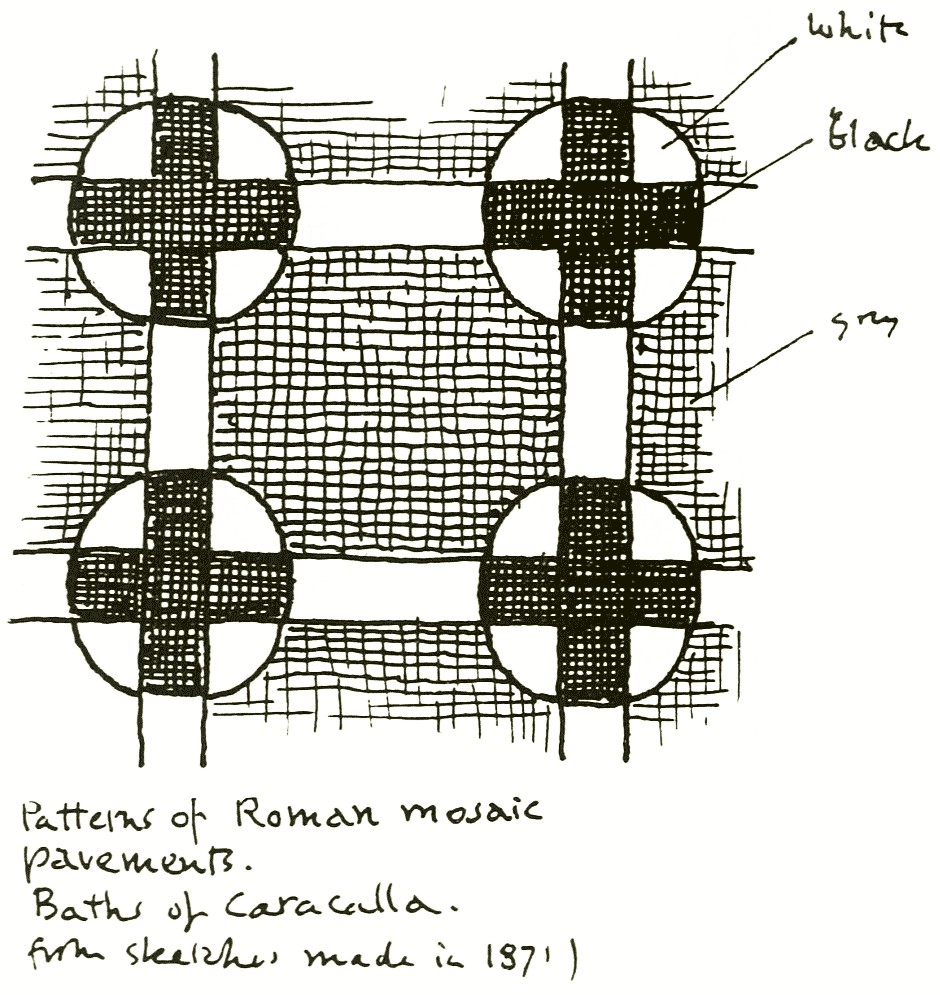 White
Black
grey
Patterns of Roman mosaic
pavements.
Baths of Caracalla.
from sketches made in 1871)